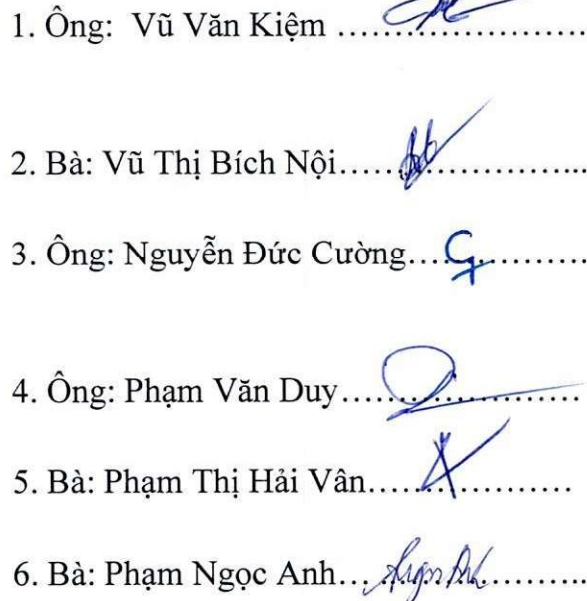 1. Ông: Vũ Văn Kiệm ........................
2. Bà: Vũ Thị Bích Nội........................
3. Ông: Nguyễn Đức Cường...................
4. Ông: Phạm Văn Duy........................
5. Bà: Phạm Thị Hải Vân....................
6. Bà: Phạm Ngọc Anh........................